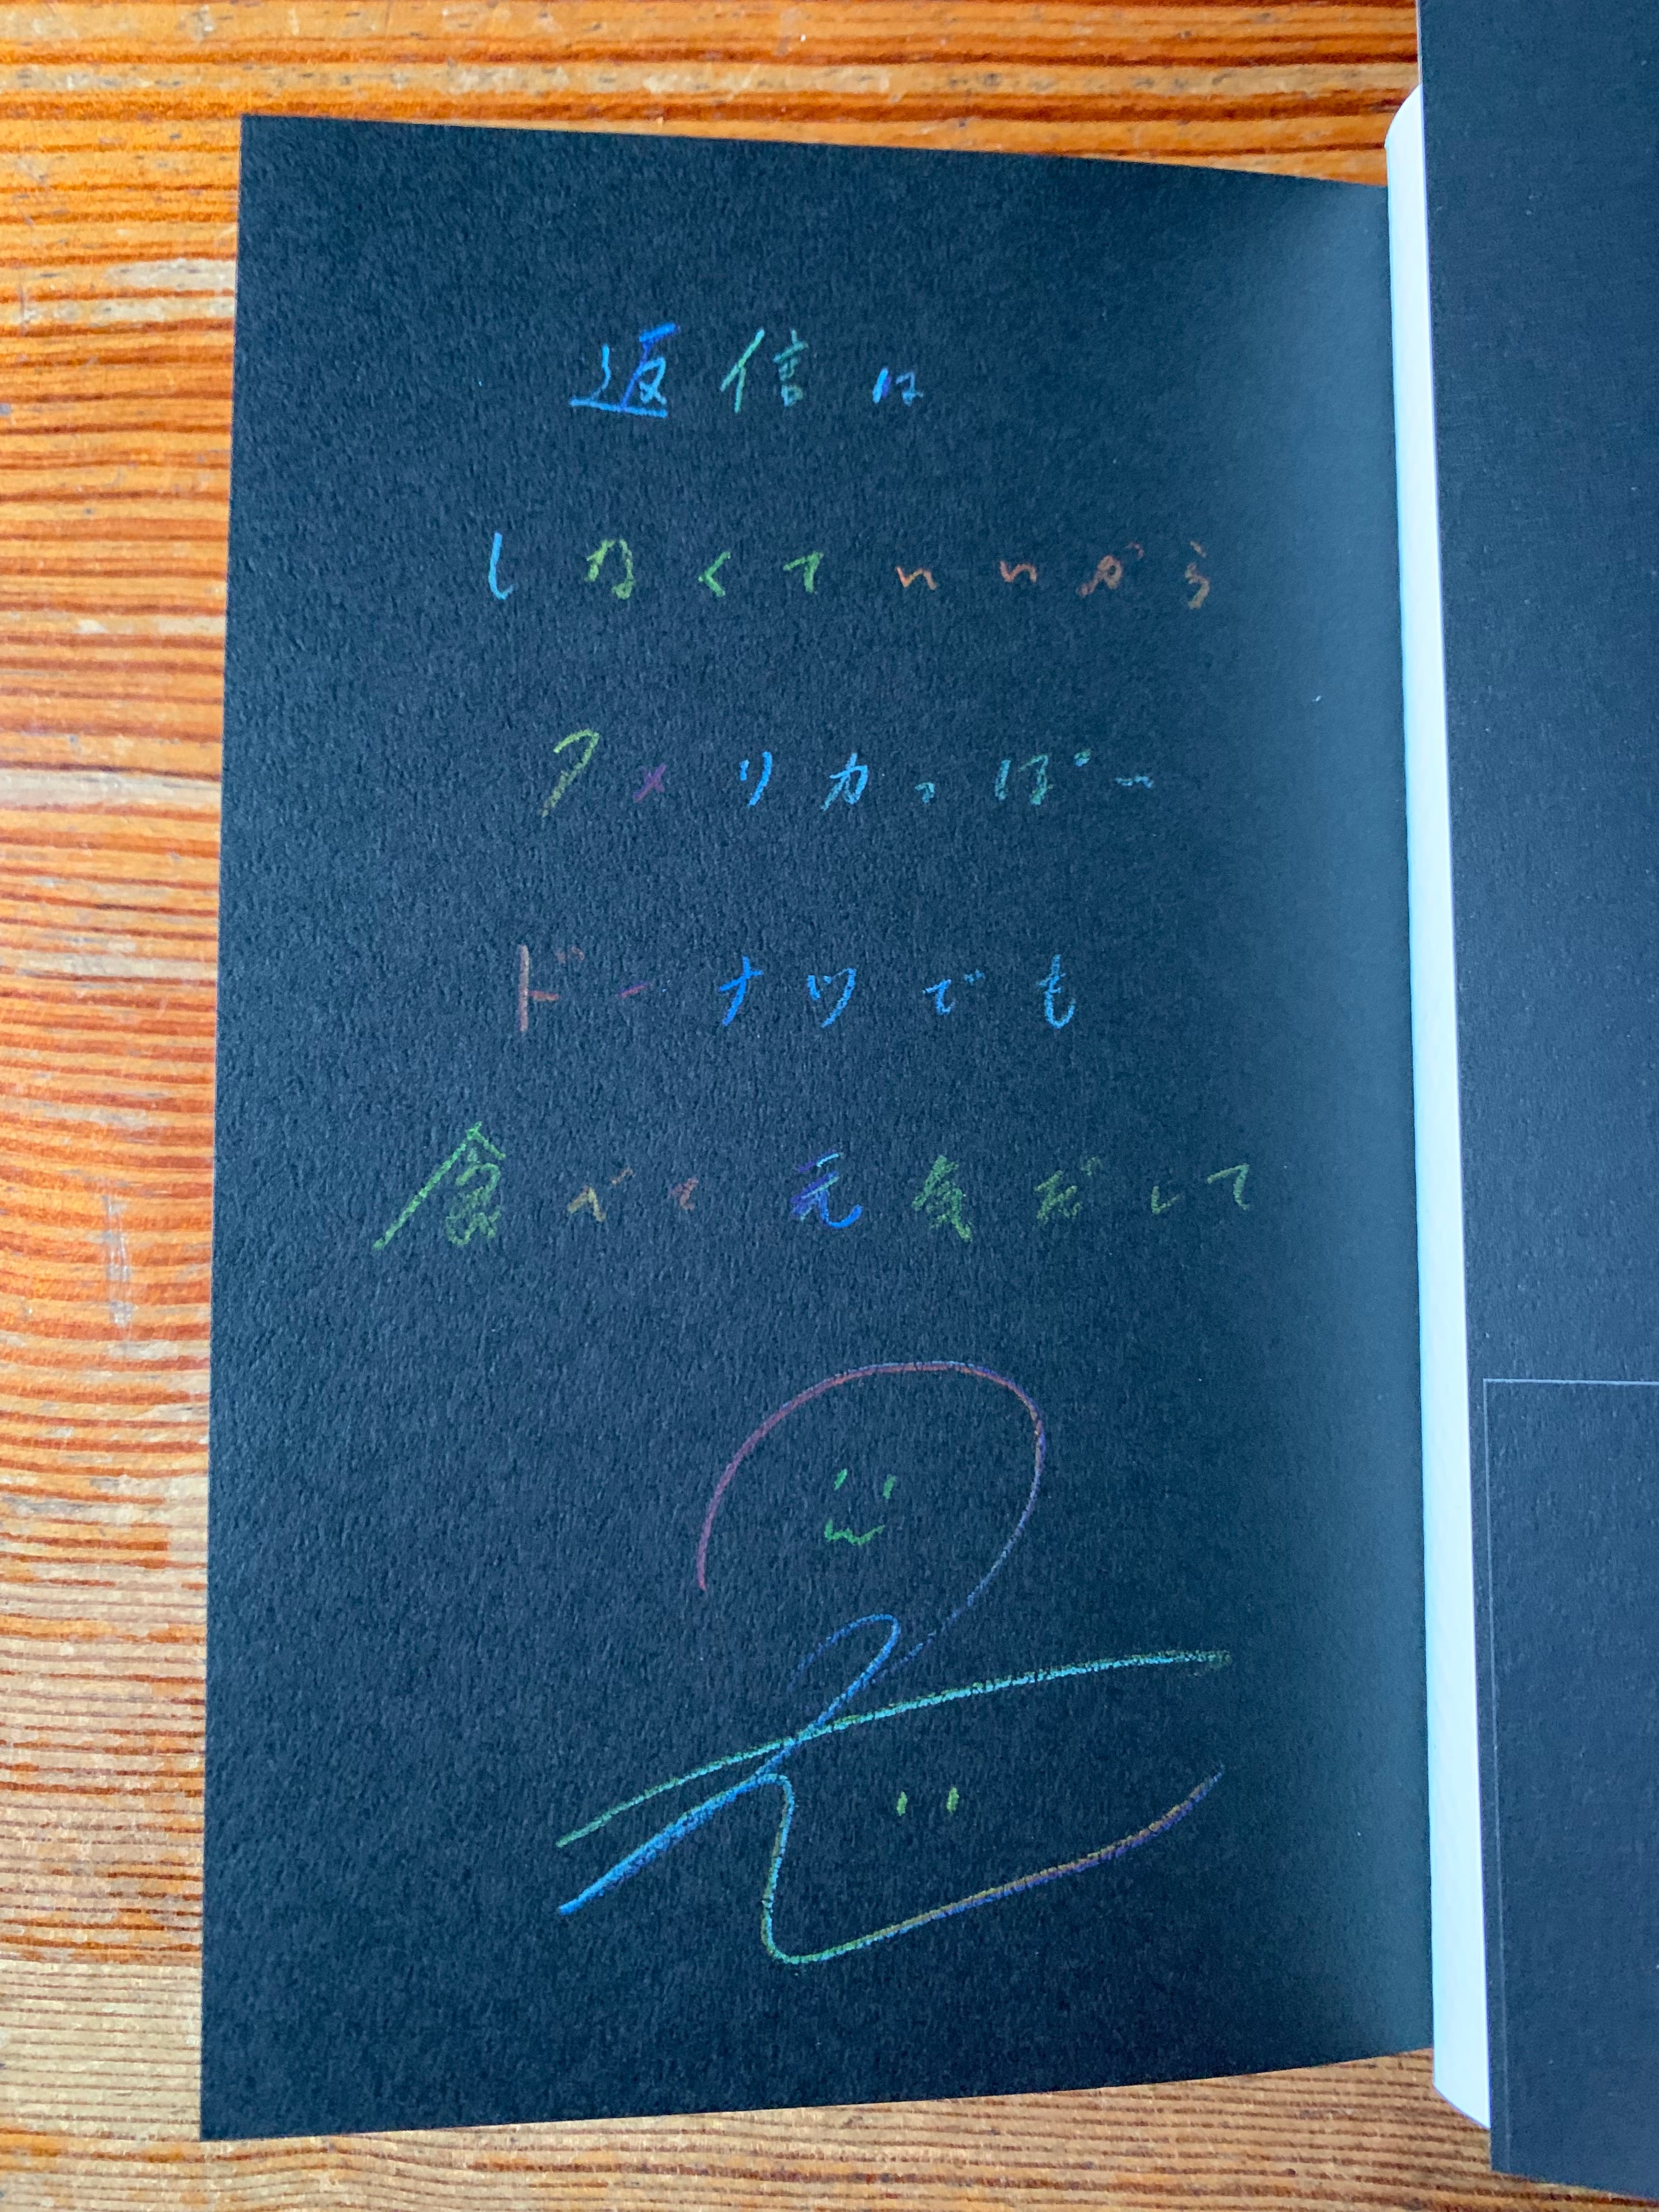 返信は
しなくていいから
アメリカっぽい
ドーナツでも
食べて元気だして